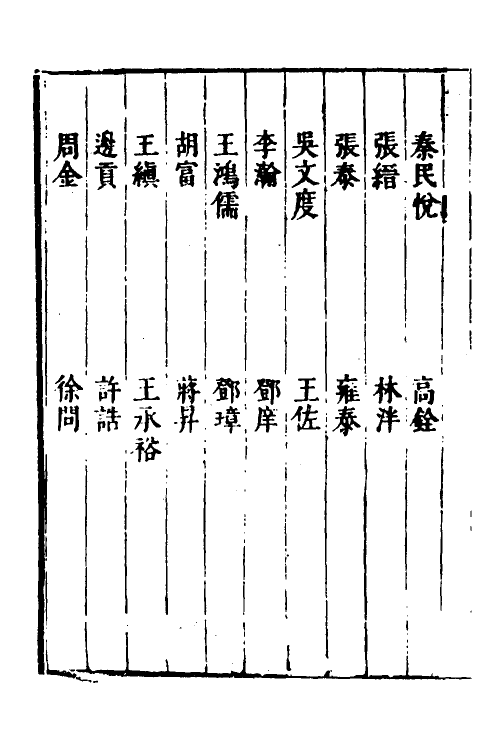 秦民悅　高銓
張縉　林泮
張泰　雍泰
吳文度　王佐
李瀚　鄧庠
王鴻儒　鄧璋
胡富　蔣昇
王縝　王承裕
邊貢　許誥
周金　徐問